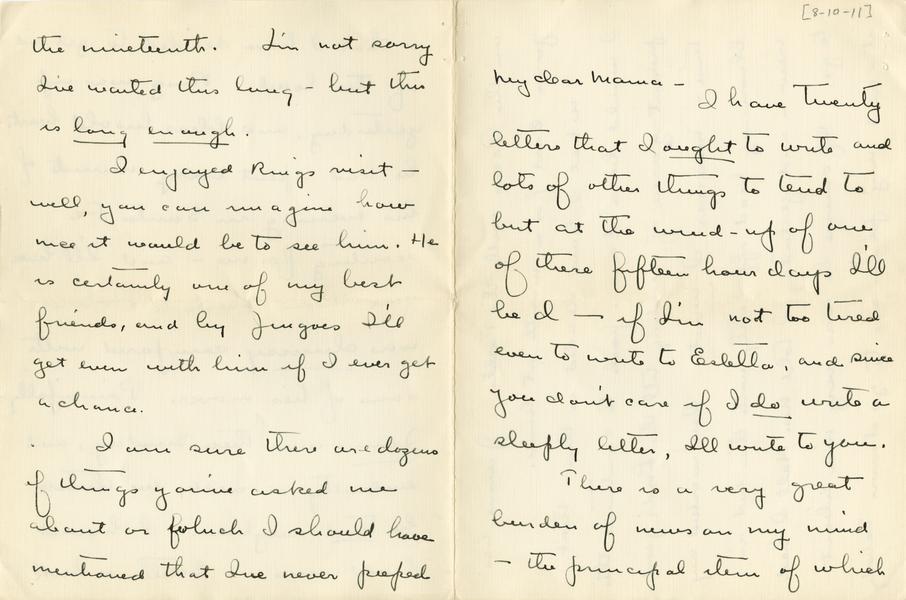 [8-10-11]
My dear Mama -
I have twenty
letters that I ought to write and
lots of other things to tend to
but at the wind-up of one
of these fifteen hour days I'll
be d — if I'm not too tired
even to write to Estella, and since
you don't care if I do write a
sleeply letter, I'll write to you.
There is a very great
burden of news on my mind
- the principal item of which
the nineteenth. I'm not sorry
I've waited this long - but this
is long enough.
I enjoyed Kings visit -
well, you can imagine how
nice it would be to see him. He
is certainly one of my best
friends, and by Jingoes I'll
get even with him if I ever get
a chance.
I am sure there are dozens
of things you've asked me
about or which I should have
mentioned that I've never peeped